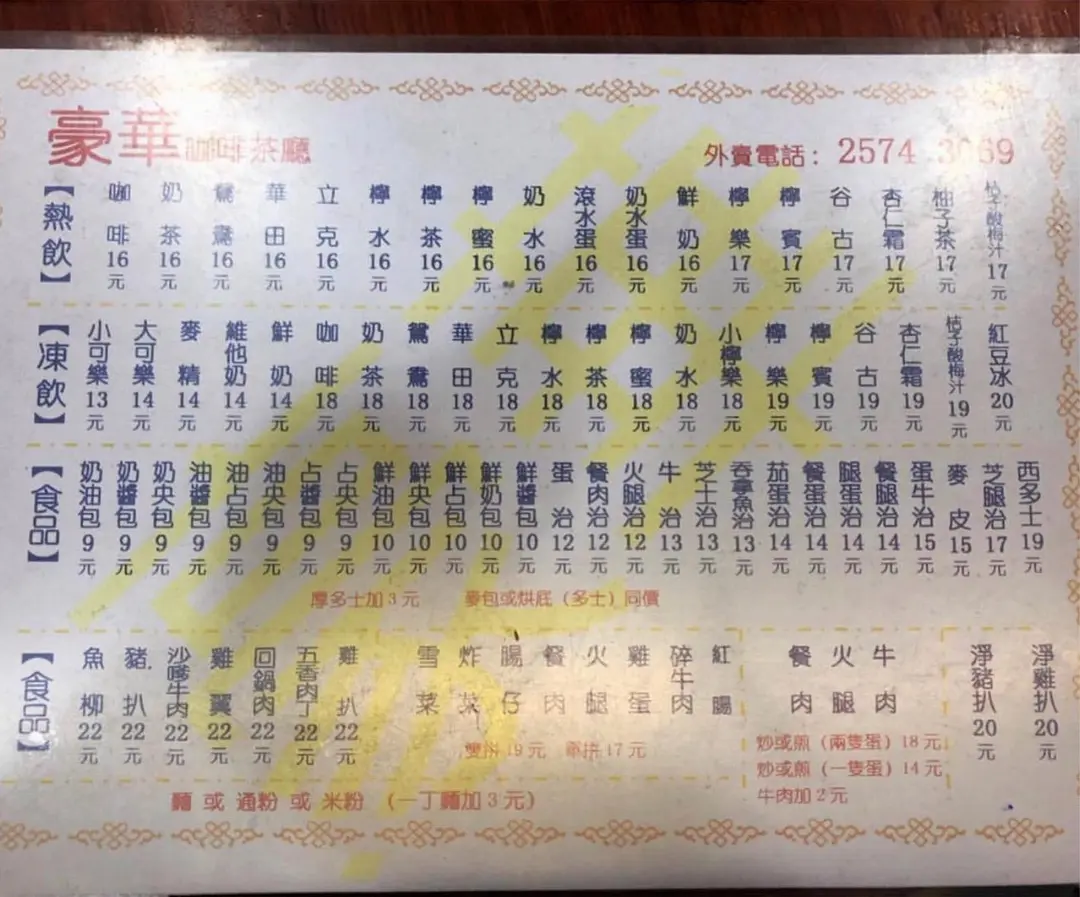 豪華咖啡茶廳
外賣電話：2574 3069
【熱飲】
咖啡16元
奶茶16元
鴛鴦16元
華田16元
立克16元
檸水16元
檸茶16元
檸蜜16元
奶水16元
滾水蛋16元
奶水蛋16元
鮮奶16元
檸樂17元
檸賓17元
谷古17元
杏仁霜17元
柚子茶17元
桔子酸梅汁17元
【凍飲】
小可樂13元
大可樂14元
麥精14元
維他奶14元
鮮奶14元
咖啡18元
奶茶18元
鴛鴦18元
華田18元
立克18元
檸水18元
檸茶18元
檸蜜18元
奶水18元
小檸樂18元
檸樂19元
檸賓19元
谷古19元
杏仁霜19元
桔子酸梅汁19元
紅豆冰20元
【食品】
奶油包9元
奶醬包9元
奶央包9元
油醬包9元
油占包9元
油央包9元
占醬包9元
占央包9元
鮮油包10元
鮮央包10元
鮮占包10元
鮮奶包10元
鮮醬包10元
蛋治12元
餐肉治12元
火腿治12元
牛治13元
芝士治13元
吞拿魚治13元
茄蛋治14元
餐蛋治14元
腿蛋治14元
餐腿治14元
蛋牛治15元
麥皮15元
芝腿治17元
西多士19元
厚多士加3元 麥包或烘底（多士）同價
【食品】
魚柳22元
豬扒22元
沙嗲牛肉22元
雞翼22元
回鍋肉22元
五香肉丁22元
雞扒22元
雪菜
炸菜
腸仔
餐肉
火腿
雞蛋
碎牛肉
紅腸
雙拼19元 單拼17元
餐肉
火腿
牛肉
炒或煎（兩隻蛋）18元
炒或煎（一隻蛋）14元
牛肉加2元
淨豬扒20元
淨雞扒20元
麵 或 通粉 或 米粉 （一丁麵加3元）